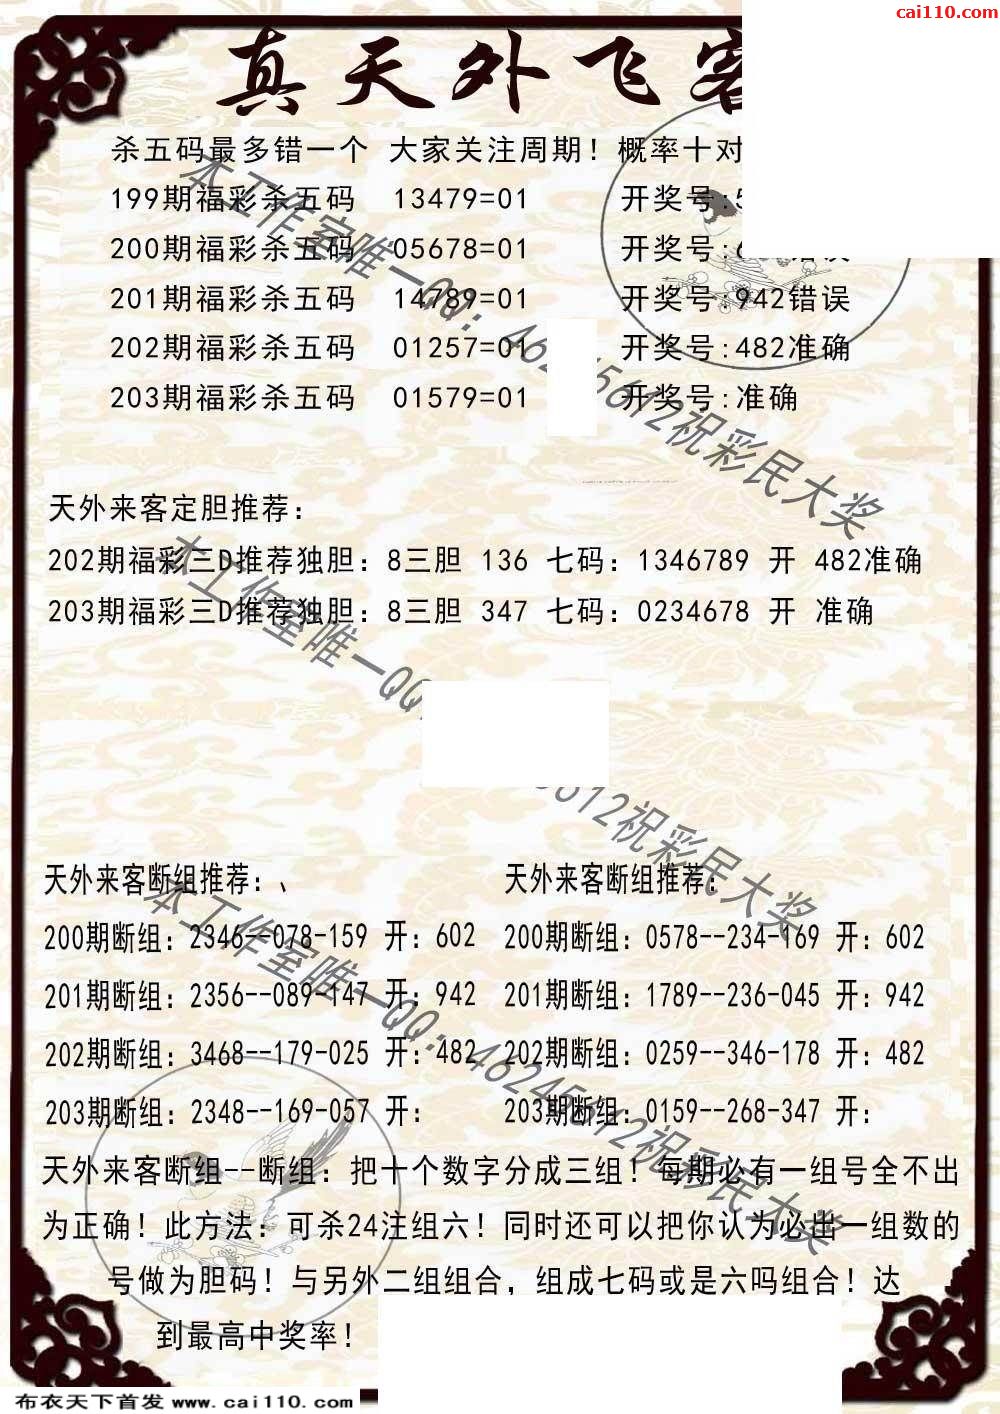 cai110.com
真天外飞客
杀五码最多错一个 大家关注周期！概率十对
199期福彩杀五码 13479=01 开奖号:5
200期福彩杀五码 05678=01 开奖号:6
201期福彩杀五码 14789=01 开奖号:942错误
202期福彩杀五码 01257=01 开奖号:482准确
203期福彩杀五码 01579=01 开奖号:准确
本工作室唯一QQ：46245612祝彩民大奖
天外来客定胆推荐：
202期福彩三D推荐独胆：8三胆 136 七码：1346789 开 482准确
203期福彩三D推荐独胆：8三胆 347 七码：0234678 开 准确
本工作室唯一QQ
5612祝彩民大奖
天外来客断组推荐：、 天外来客断组推荐：
200期断组：2346--078-159 开：602 200期断组：0578--234-169 开：602
201期断组：2356--089-147 开：942 201期断组：1789--236-045 开：942
202期断组：3468--179-025 开：482 202期断组：0259--346-178 开：482
203期断组：2348--169-057 开： 203期断组：0159--268-347 开：
本工作室唯一QQ：46245612祝彩民大奖
天外来客断组--断组：把十个数字分成三组！每期必有一组号全不出
为正确！此方法：可杀24注组六！同时还可以把你认为必出一组数的
号做为胆码！与另外二组组合，组成七码或是六吗组合！达
到最高中奖率！
布衣天下首发 www.cai110.com